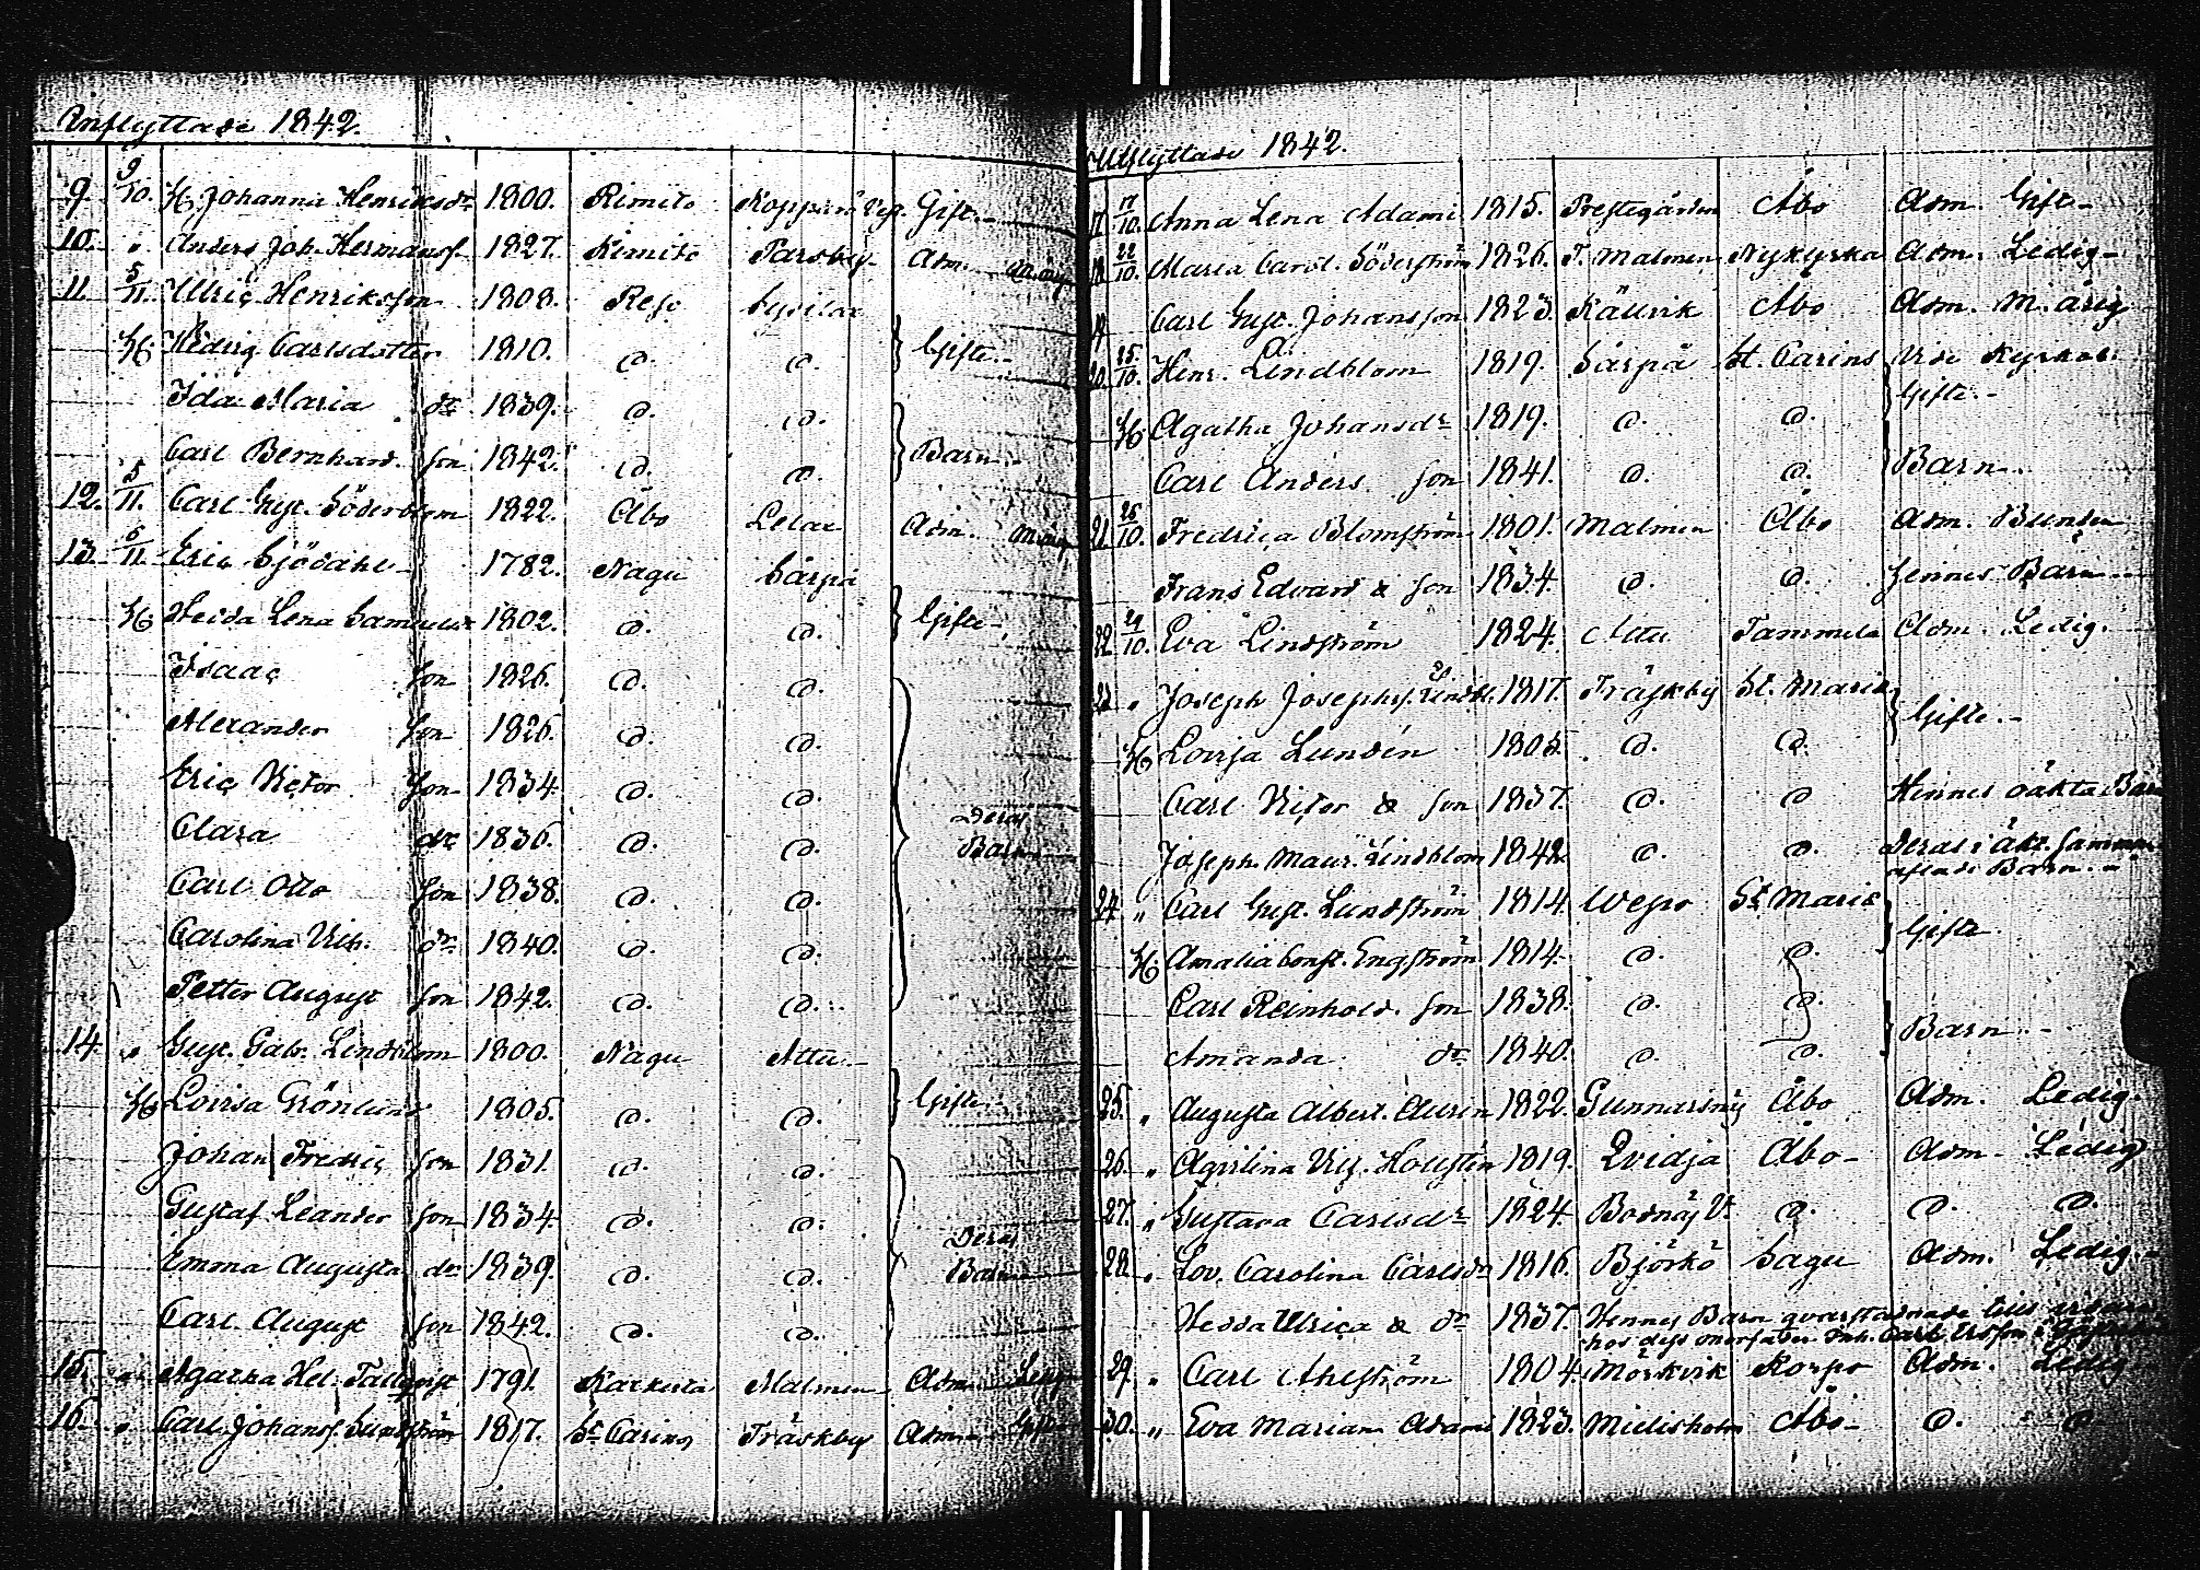 Inflyttade 1842.
9. 9/10. H. Johanna Henricsdr 1800. Kimito Koppari Gift.
10. " Anders Joh. Hermansf. 1827. Kimito Parsby Adm.
11. 5/11. Ulric Henriksson 1808. Reso Sysilax
H. Hedvig Carlsdotter 1810. d. d. Gifte.
Ida Maria dr 1839. d. d.
Carl Bernhard son 1842. d. d. Barn.
12. 5/11. Carl Gust. Söderblom 1822. Åbo Lelax Adm.
13. 6/11. Eric Sjödahl 1782. Nagu Särpä
H. Hedda Lena 1802. d. d. Gifte
Isaac son 1826. d. d.
Alexander son 1826. d. d.
Eric Victor son 1834. d. d.
Clara dr 1836. d. d. Deras Barn
Carl Otto son 1838. d. d.
Carolina Vilh. dr 1840. d. d.
Petter August son 1842. d. d.
14. " Gust. Gabr. Lindblom 1800. Nagu Attu
H. Lovisa Grönlund 1805. d. d. Gifte.
Johan Fredric son 1831. d. d.
Gustaf Leander son 1834. d. d. Deras
Emma Augusta dr 1839. d. d. Barn
Carl August son 1842. d. d.
15. Agatha Hel. Tallqvist 1791. Malmen Adm.
16. " Carl Johansf. 1817. St Carins Träskby Adm.
Utflyttade 1842.
17 17/10. Anna Lena Adami 1815. Prestegården Åbo Adm. Gift
18 22/10. Maria Carol. Söderström 1826. T. Malmen Nykyrka Adm. Ledig
19 Carl Gust. Johansson 1823. Källvik Åbo Adm. M. årig
20. 25/10. Henr. Lindblom 1819. Särpä St. Carins Vide
H. Agatha Johansdr 1819. d. d. Gifte.
Carl Anders son 1841. d. d. Barn.
21 26/10. Fredrica Blomström 1801. Malmen Åbo Adm.
Frans Edvard son 1834. d. d. Hennes Barn
22 29/10. Eva Lindström 1824. Attu Tammela Adm. Ledig.
23 " Joseph Josephs. Lindbl. 1817. Träskby St. Marie
H. Lovisa Lundén 1805. d. d. Gifte.
Carl Victor son 1837. d. d Hennes oäkta Barn
Joseph Maur. Lindblom 1842. d. d. Deras i äkt. samman
aflade Barn.
24. " Carl Gust. Lundström 1814. Wepo St Marie
H. Amalia Const. Engström 1814. d. d. Gifte
Carl Reinhold son 1838. d. d.
Amanda dr 1840. d. d. Barn.
25. " Augusta Albert. Aurén 1822. Gunnarsnäs Åbo Adm. Ledig.
26. " Agrilina Ulr. Hollstén 1819. Qvidja Åbo Adm. Ledig
27. " Gustava Carlsdr 1824. Bodnäs V. d. d. d.
28. " Lov. Carolina Carlsdr 1816. Björkö Sagu Adm. Ledig.
Hedda Ulrica dr 1837. Hennes Barn qvarstadnade
hos dess morfader
29. " Carl Ahlström 1804. Mörkvik Korpo Adm. Ledig
30. " Eva Mariana Adami 1823. Mielisholm Åbo d. d